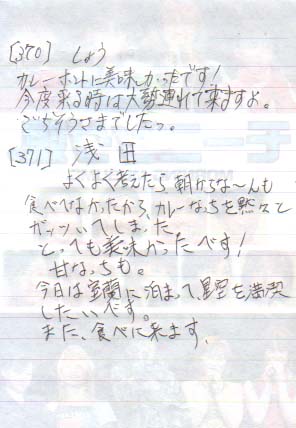 [370] しょう
カレーホントに美味しかったです！
今度来る時は大勢連れて来ますよ。
ごちそうさまでしたっ。
[371] 浅田
よくよく考えたら朝からな〜んも
食べてなかったから、カレーなっちを黙々と
ガッツいてしまった。
とっても美味かったべす！
甘なっちも。
今日は室蘭に泊まって、星空を満喫
したいべす。
また、食べに来ます。